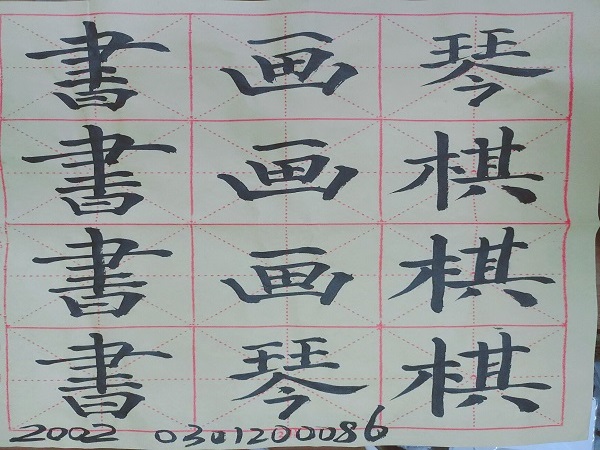 書 画 琴
書 画 棋
書 画 棋
書 琴 棋
2002 0301200086